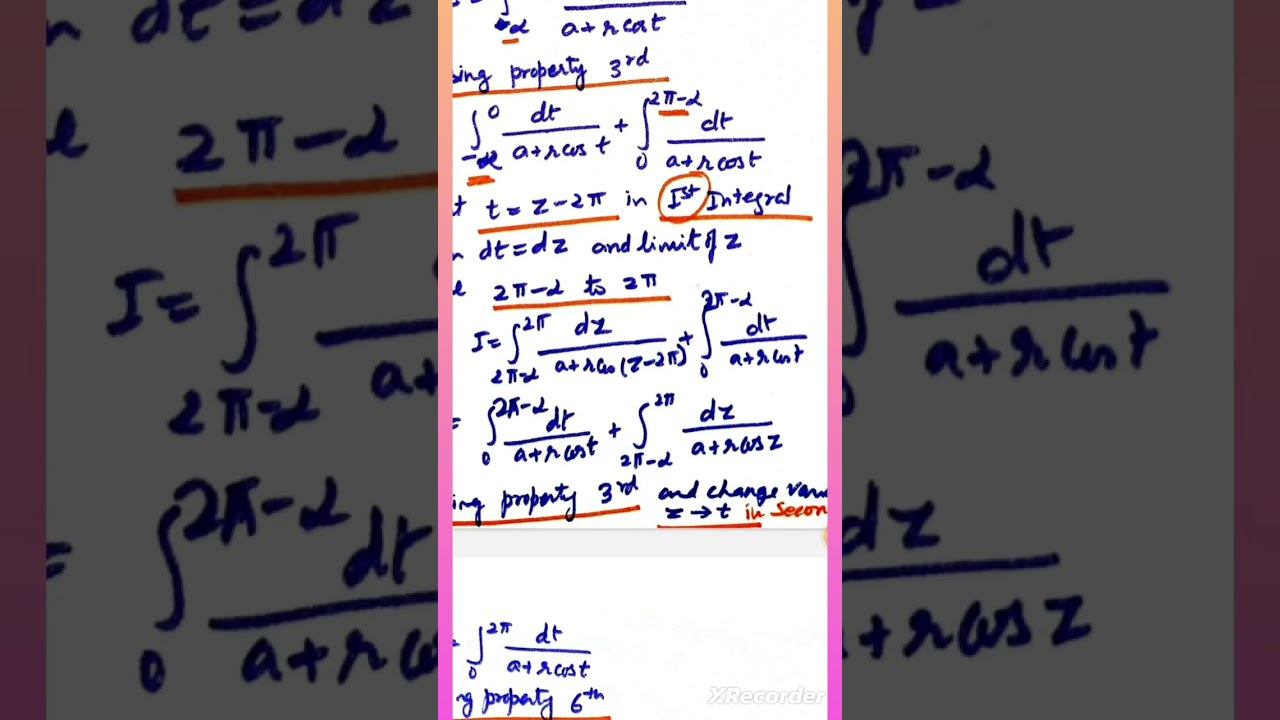 -α a+r cos t
sing property 3rd
∫_{-α}^{0} dt/(a+r cos t) + ∫_{0}^{2π-α} dt/(a+r cos t)
t t = z-2π in Ist Integral
n dt = dz and limit of z
2π-α to 2π
I = ∫_{2π-α}^{2π} dz/(a+r cos(z-2π)) + ∫_{0}^{2π-α} dt/(a+r cos t)
= ∫_{0}^{2π-α} dt/(a+r cos t) + ∫_{2π-α}^{2π} dz/(a+r cos z)
ing property 3rd and change var
z → t in Secon
= ∫_{0}^{2π} dt/(a+r cos t)
ng property 6th
XRecorder